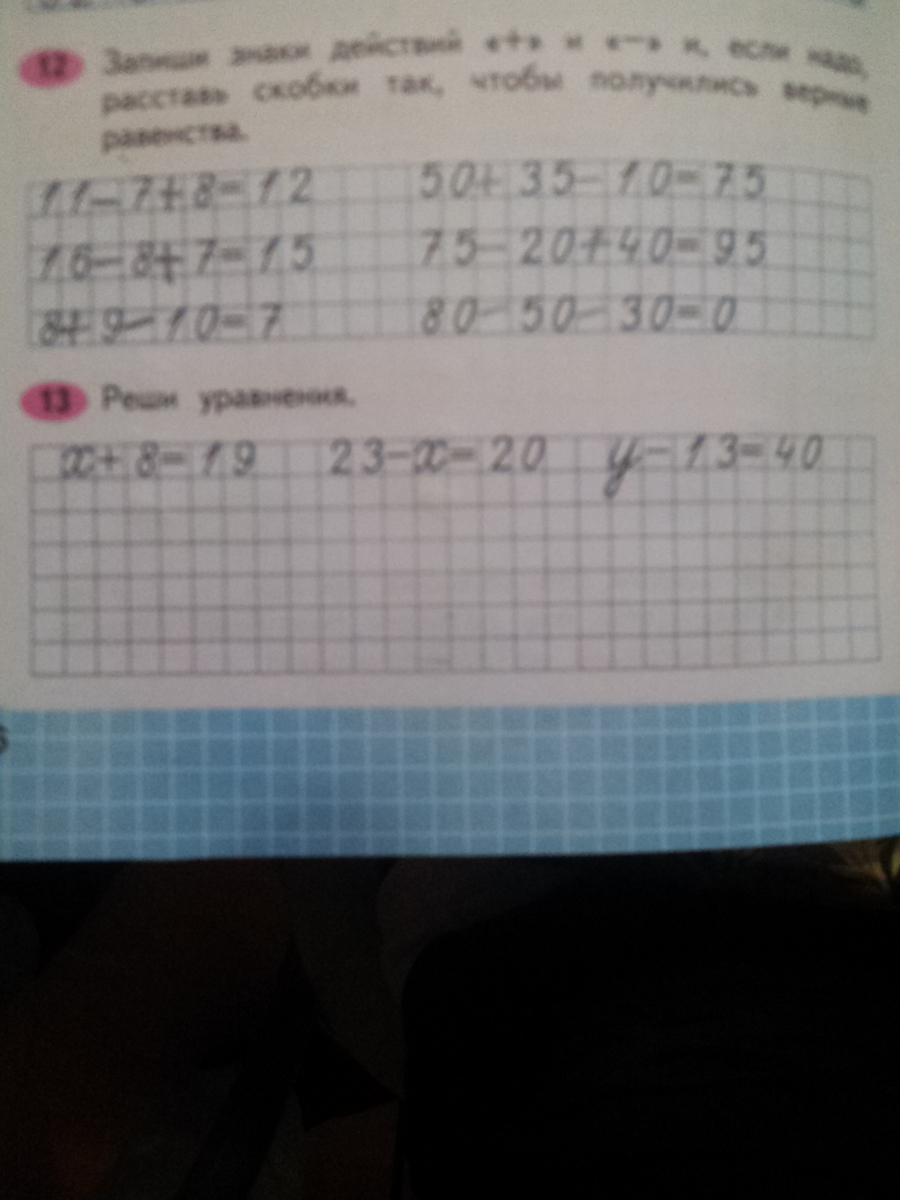 12 Запиши знаки действий «+» и «−» и, если надо,
расставь скобки так, чтобы получились верные
равенства.
11−7+8=12 50+35−10=75
16−8+7=15 75−20+40=95
8+9−10=7 80−50−30=0
13 Реши уравнения.
x+8=19 23−x=20 y−13=40